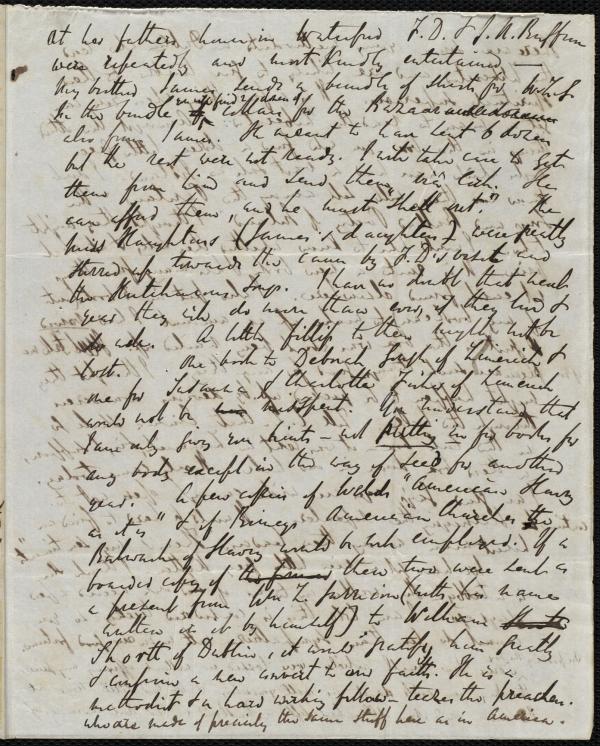 at her father's house in Waterford F.D. & J.N. Buffum
were repeatedly and most kindly entertained —
My brother James sends a bundle of shirts for
In the bundle collars for the Bazaar
also from James. He meant to have sent 6 dozen
but the rest were not ready. I will take care to get
them from him and send them via Cork. He
can afford them, and he must "shell out". The
Miss Haughtons (James's daughters) were pretty
stirred up towards the cause by F.D.'s visit and
the Hutchinsons songs. I have no doubt that next
year they will do more than ever, if they live &
do well. A little fillip to them might not be
lost. One book to Deborah of Limerick &
one for Susanna & Charlotte Fisher of Limerick
would not be misspent. You understand that
I am only giving you hints — not putting in for books for
any body except in the way of seed for another
year. A few copies of Weld's "American Slavery
as it is" & of Birney's American Churches the
Bulwark of Slavery would be well employed. If a
boarded copy of the former these two were sent as
a present from Wm L. Garrison (with his name
written in it by himself) to William
Shortt of Dublin, it would gratify him greatly
& confirm a new convert to our faith. He is a
methodist & a hard working fellow — teazes the preachers
who are made of precisely the same stuff here as in America.